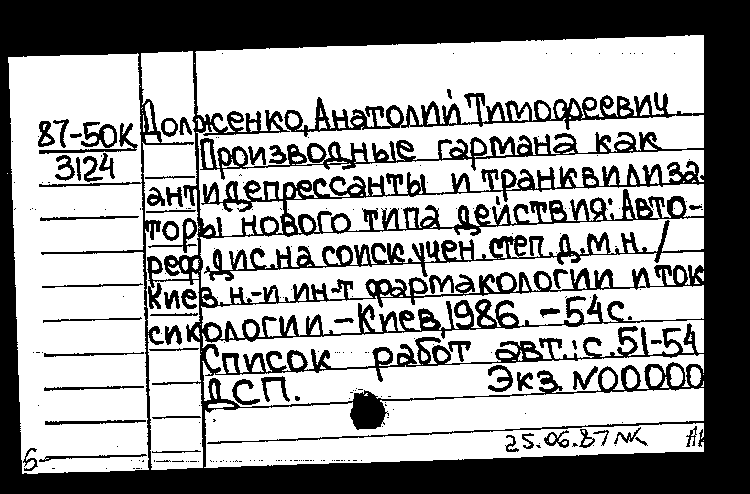 87-50К
3124
Долженко, Анатолий Тимофеевич.
Производные гармана как
антидепрессанты и транквилиза-
торы нового типа действия: Авто-
реф. дис. на соиск. учен. степ. д.м.н. /
Киев. н.-и. ин-т фармакологии и ток
сикологии. – Киев, 1986. – 54 с.
Список работ авт.: с. 51-54
ДСП. Экз. N00000
25.06.87